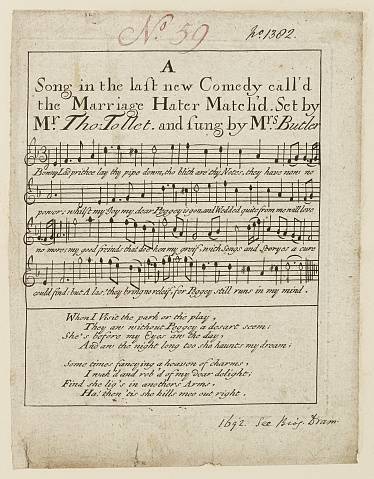 No. 59
No. 1382.
A
Song in the last new Comedy call'd
the Marriage Hater Match'd. Set by
Mr. Tho: Tollet. and sung by Mrs Butler
Bonny Lad prithee lay thy pipe down, tho blith are thy Notes, they have now no
power; whilst my Joy my dear Peggey is gon, and Wedded quite from me will love
no more; my good freinds that doe ken my greif; with Songs and Storyes a cure
could find; but A las; they bring no releif, for Peggey still runs in my mind.
When I Visit the park or the play,
They all without Peggey a desart seem;
She's before my Eyes all the day,
And all the night long too she haunts my dream;
Some times fancying a heaven of charms,
I wak'd and rob'd of my dear delight;
Find she lig's in anothers Arms,
Ha! then 'tis she kills mee out right.
1692. See Biog. Dram